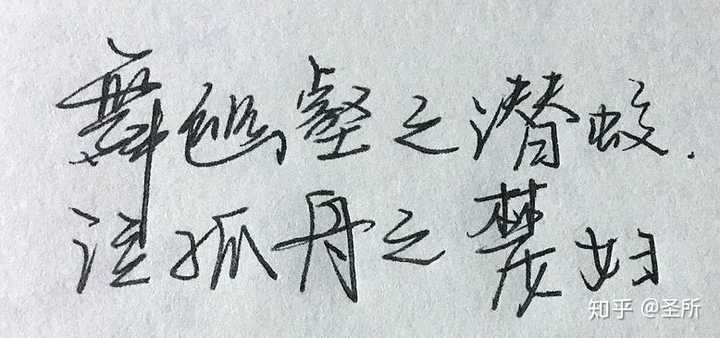 舞幽壑之潜蛟.
泣孤舟之嫠妇
知乎 @圣所